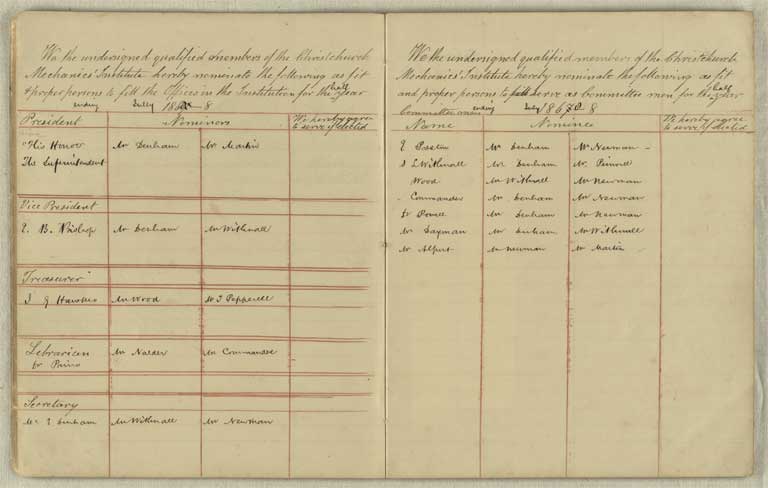 We the undersigned qualified members of the Christchurch
Mechanics' Institute hereby nominate the following as fit
& proper persons to fill the Offices in the Institution for the half year
ending July 186 - 8
President Nominors We hereby agree
to serve if elected
"His Honor Mr Denham Mr Martin
The Superintendent
Vice President
E. B. Bishop Mr Denham Mr Withnall
Treasurer
J G Hawkes Mr Wood Mr J Pepperell
Librarian Mr Nalder Mr Commander
Dr
Secretary
Mr J Denham Mr Withnall Mr Newman
We the undersigned qualified members of the Christchurch
Mechanics' Institute hereby nominate the following as fit
and proper persons to serve as Committee men for the half year
Committee men ending July 186 - 8
Name Nominee We hereby agree
to serve if elected
Mr Denham Mr Newman -
J L Withnall Mr Denham Mr
Wood Mr Withnall Mr Newman
- Commander Mr Denham Mr Newman
Dr Powell Mr Denham Mr Newman
Mr Mr Denham Mr Withnall
Mr Alport Mr Newman Mr Martin -